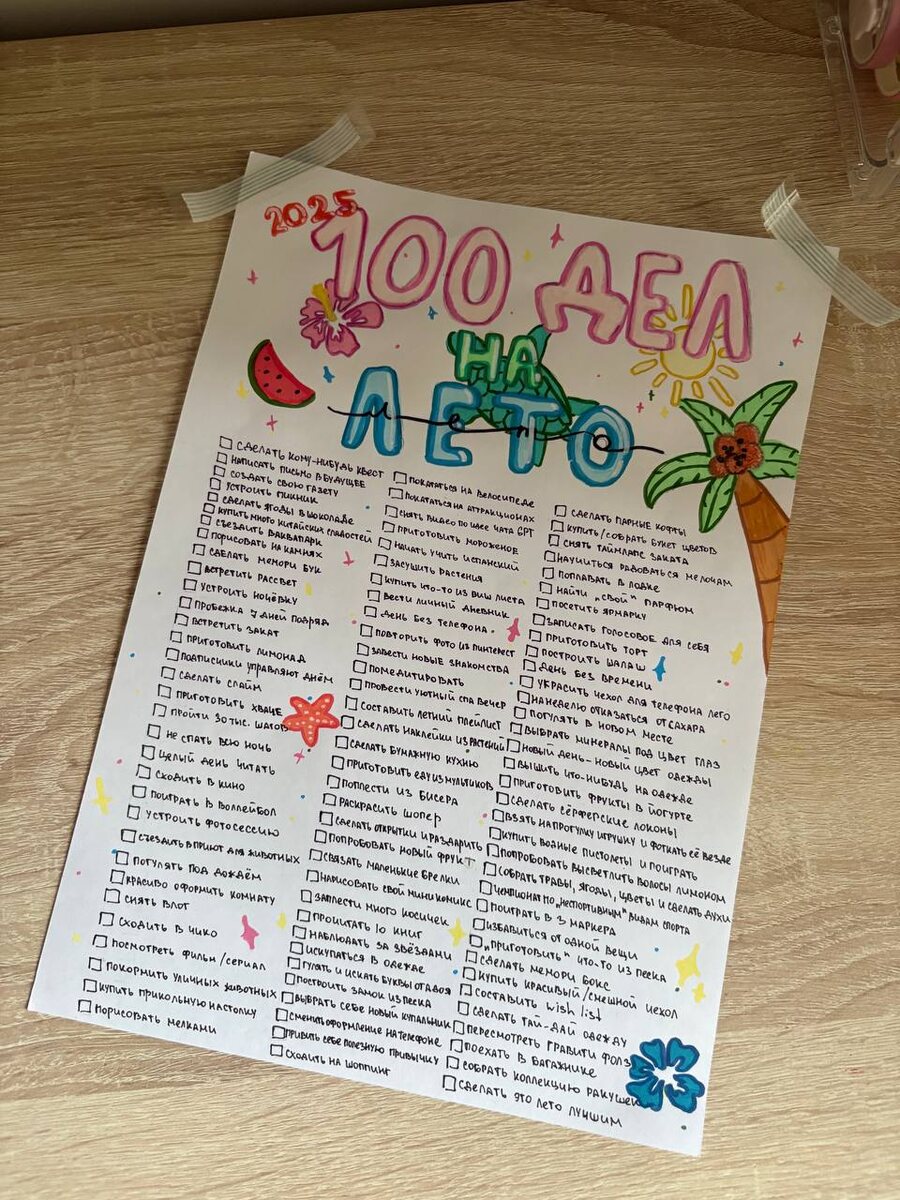 2025
100 ДЕЛ
НА
ЛЕТО
лето
СДЕЛАТЬ КОМУ-НИБУДЬ КВЕСТ
НАПИСАТЬ ПИСЬМО В БУДУЩЕЕ
СОЗДАТЬ СВОЮ ГАЗЕТУ
УСТРОИТЬ ПИКНИК
СДЕЛАТЬ ЯГОДЫ В ШОКОЛАДЕ
КУПИТЬ МНОГО КИТАЙСКИХ СЛАДОСТЕЙ
СЪЕЗДИТЬ В АКВАПАРК
ПОРИСОВАТЬ НА КАМНЯХ
СДЕЛАТЬ МЕМОРИ БУК
ВСТРЕТИТЬ РАССВЕТ
УСТРОИТЬ НОЧЁВКУ
ПРОБЕЖКА 7 ДНЕЙ ПОДРЯД
ВСТРЕТИТЬ ЗАКАТ
ПРИГОТОВИТЬ ЛИМОНАД
ПОДПИСЧИКИ УПРАВЛЯЮТ ДНЁМ
СДЕЛАТЬ СЛАЙМ
ПРИГОТОВИТЬ КВАЧЕ
ПРОЙТИ 30 ТЫС. ШАГОВ
НЕ СПАТЬ ВСЮ НОЧЬ
ЦЕЛЫЙ ДЕНЬ ЧИТАТЬ
СХОДИТЬ В КИНО
ПОИГРАТЬ В ВОЛЛЕЙБОЛ
УСТРОИТЬ ФОТОСЕССИЮ
СЪЕЗДИТЬ В ПРИЮТ ДЛЯ ЖИВОТНЫХ
ПОГУЛЯТЬ ПОД ДОЖДЁМ
КРАСИВО ОФОРМИТЬ КОМНАТУ
СНЯТЬ ВЛОГ
СХОДИТЬ В ЧИКО
ПОСМОТРЕТЬ ФИЛЬМ / СЕРИАЛ
ПОКОРМИТЬ УЛИЧНЫХ ЖИВОТНЫХ
КУПИТЬ ПРИКОЛЬНУЮ НАСТОЛКУ
ПОРИСОВАТЬ МЕЛКАМИ
ПОКАТАТЬСЯ НА ВЕЛОСИПЕДЕ
ПОКАТАТЬСЯ НА АТТРАКЦИОНАХ
СНЯТЬ ВИДЕО ПО ИДЕЕ ЧАТА GPT
ПРИГОТОВИТЬ МОРОЖЕНОЕ
НАЧАТЬ УЧИТЬ ИСПАНСКИЙ
ЗАСУШИТЬ РАСТЕНИЯ
КУПИТЬ ЧТО-ТО ИЗ ВИШ ЛИСТА
ВЕСТИ ЛИЧНЫЙ ДНЕВНИК
ДЕНЬ БЕЗ ТЕЛЕФОНА
ПОВТОРИТЬ ФОТО ИЗ ПИНТЕРЕСТ
ЗАВЕСТИ НОВЫЕ ЗНАКОМСТВА
ПОМЕДИТИРОВАТЬ
ПРОВЕСТИ УЮТНЫЙ СПА ВЕЧЕР
СОСТАВИТЬ ЛЕТНИЙ ПЛЕЙЛИСТ
СДЕЛАТЬ НАКЛЕЙКИ ИЗ РАСТЕНИЙ
СДЕЛАТЬ БУМАЖНУЮ КУХНЮ
ПРИГОТОВИТЬ ЕДУ ИЗ МУЛЬТИКОВ
ПОПЛЕСТИ ИЗ БИСЕРА
РАСКРАСИТЬ ШОПЕР
СДЕЛАТЬ ОТКРЫТКИ И РАЗДАРИТЬ
ПОПРОБОВАТЬ НОВЫЙ ФРУКТ
СВЯЗАТЬ МАЛЕНЬКИЕ БРЕЛКИ
НАРИСОВАТЬ СВОЙ МИНИ КОМИКС
ЗАПЛЕСТИ МНОГО КОСИЧЕК
ПРОЧИТАТЬ 10 КНИГ
НАБЛЮДАТЬ ЗА ЗВЁЗДАМИ
ИСКУПАТЬСЯ В ОДЕЖДЕ
ГУЛЯТЬ И ИСКАТЬ БУКВЫ ОТ А ДО Я
ПОСТРОИТЬ ЗАМОК ИЗ ПЕСКА
ВЫБРАТЬ СЕБЕ НОВЫЙ КУПАЛЬНИК
СМЕНИТЬ ОФОРМЛЕНИЕ НА ТЕЛЕФОНЕ
ПРИВИТЬ СЕБЕ ПОЛЕЗНУЮ ПРИВЫЧКУ
СХОДИТЬ НА ШОППИНГ
СДЕЛАТЬ ПАРНЫЕ КОФТЫ
КУПИТЬ / СОБРАТЬ БУКЕТ ЦВЕТОВ
СНЯТЬ ТАЙМЛАПС ЗАКАТА
НАУЧИТЬСЯ РАДОВАТЬСЯ МЕЛОЧАМ
ПОПЛАВАТЬ В ЛОДКЕ
НАЙТИ „СВОЙ" ПАРФЮМ
ПОСЕТИТЬ ЯРМАРКУ
ЗАПИСАТЬ ГОЛОСОВОЕ ДЛЯ СЕБЯ
ПРИГОТОВИТЬ ТОРТ
ПОСТРОИТЬ ШАЛАШ
ДЕНЬ БЕЗ ВРЕМЕНИ
УКРАСИТЬ ЧЕХОЛ ДЛЯ ТЕЛЕФОНА ЛЕГО
НА НЕДЕЛЮ ОТКАЗАТЬСЯ ОТ САХАРА
ПОГУЛЯТЬ В НОВОМ МЕСТЕ
ВЫБРАТЬ МИНЕРАЛЫ ПОД ЦВЕТ ГЛАЗ
НОВЫЙ ДЕНЬ - НОВЫЙ ЦВЕТ ОДЕЖДЫ
ВЫШИТЬ ЧТО-НИБУДЬ НА ОДЕЖДЕ
ПРИГОТОВИТЬ ФРУКТЫ В ЙОГУРТЕ
СДЕЛАТЬ СЁРФЕРСКИЕ ЛОКОНЫ
ВЗЯТЬ НА ПРОГУЛКУ ИГРУШКУ И ФОТКАТЬ ЕЁ ВЕЗДЕ
КУПИТЬ ВОДНЫЕ ПИСТОЛЕТЫ И ПОИГРАТЬ
ПОПРОБОВАТЬ ВЫСВЕТЛИТЬ ВОЛОСЫ ЛИМОНОМ
СОБРАТЬ ТРАВЫ, ЯГОДЫ, ЦВЕТЫ И СДЕЛАТЬ ДУХИ
ЧЕМПИОНАТ ПО „НЕСПОРТИВНЫМ" ВИДАМ СПОРТА
ПОИГРАТЬ В 3 МАРКЕРА
ИЗБАВИТЬСЯ ОТ ОДНОЙ ВЕЩИ
„ПРИГОТОВИТЬ" ЧТО-ТО ИЗ ПЕСКА
СДЕЛАТЬ МЕМОРИ БОКС
КУПИТЬ КРАСИВЫЙ/СМЕШНОЙ ЧЕХОЛ
СОСТАВИТЬ WISH LIST
СДЕЛАТЬ ТАЙ-ДАЙ ОДЕЖДУ
ПЕРЕСМОТРЕТЬ ГРАВИТИ ФОЛЗ
ПОЕХАТЬ В БАГАЖНИКЕ
СОБРАТЬ КОЛЛЕКЦИЮ РАКУШЕК
СДЕЛАТЬ ЭТО ЛЕТО ЛУЧШИМ